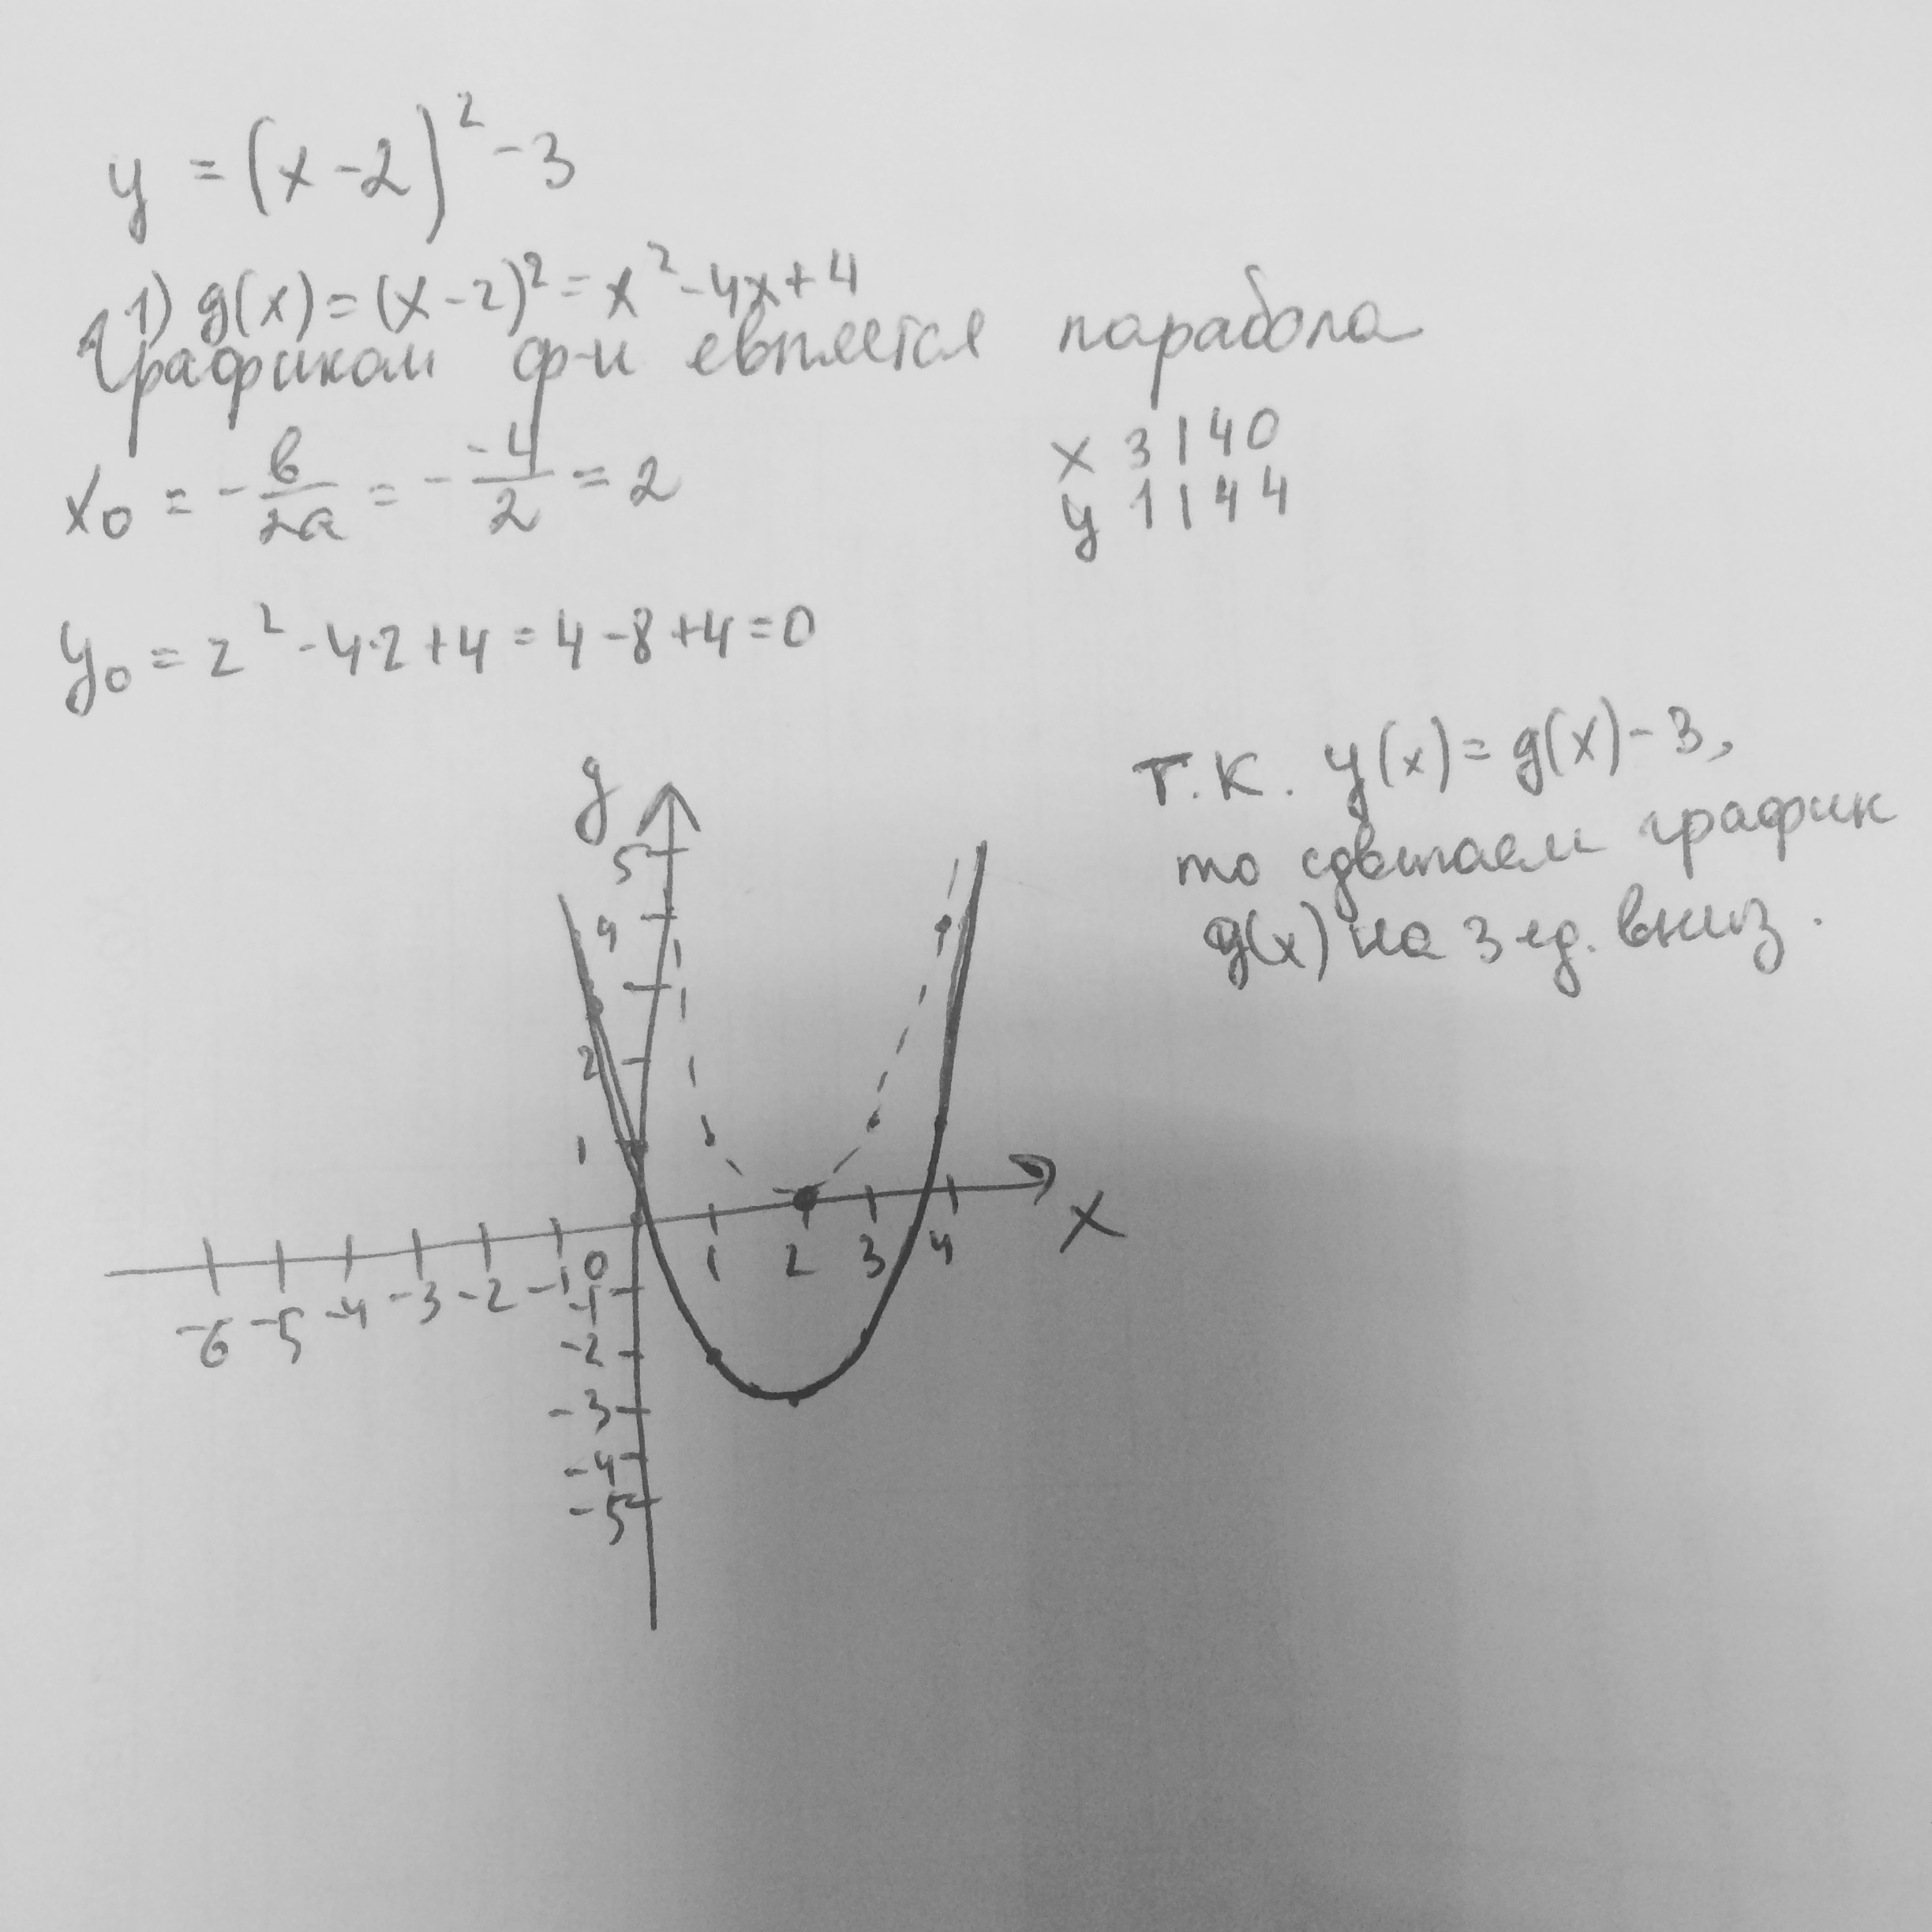 y = (x-2)² - 3
1) g(x) = (x-2)² = x² - 4x + 4
Графиком ф-и евляется парабола
x₀ = -в/2а = - -4/2 = 2
x 3 1 4 0
y 1 1 4 4
y₀ = 2² - 4·2 + 4 = 4 - 8 + 4 = 0
т.к. y(x) = g(x) - 3,
то сдвигаем график
g(x) на 3 ед. вниз.
y
5
4
2
1
x
-6 -5 -4 -3 -2 -1 0 1 2 3 4
-1
-2
-3
-4
-5